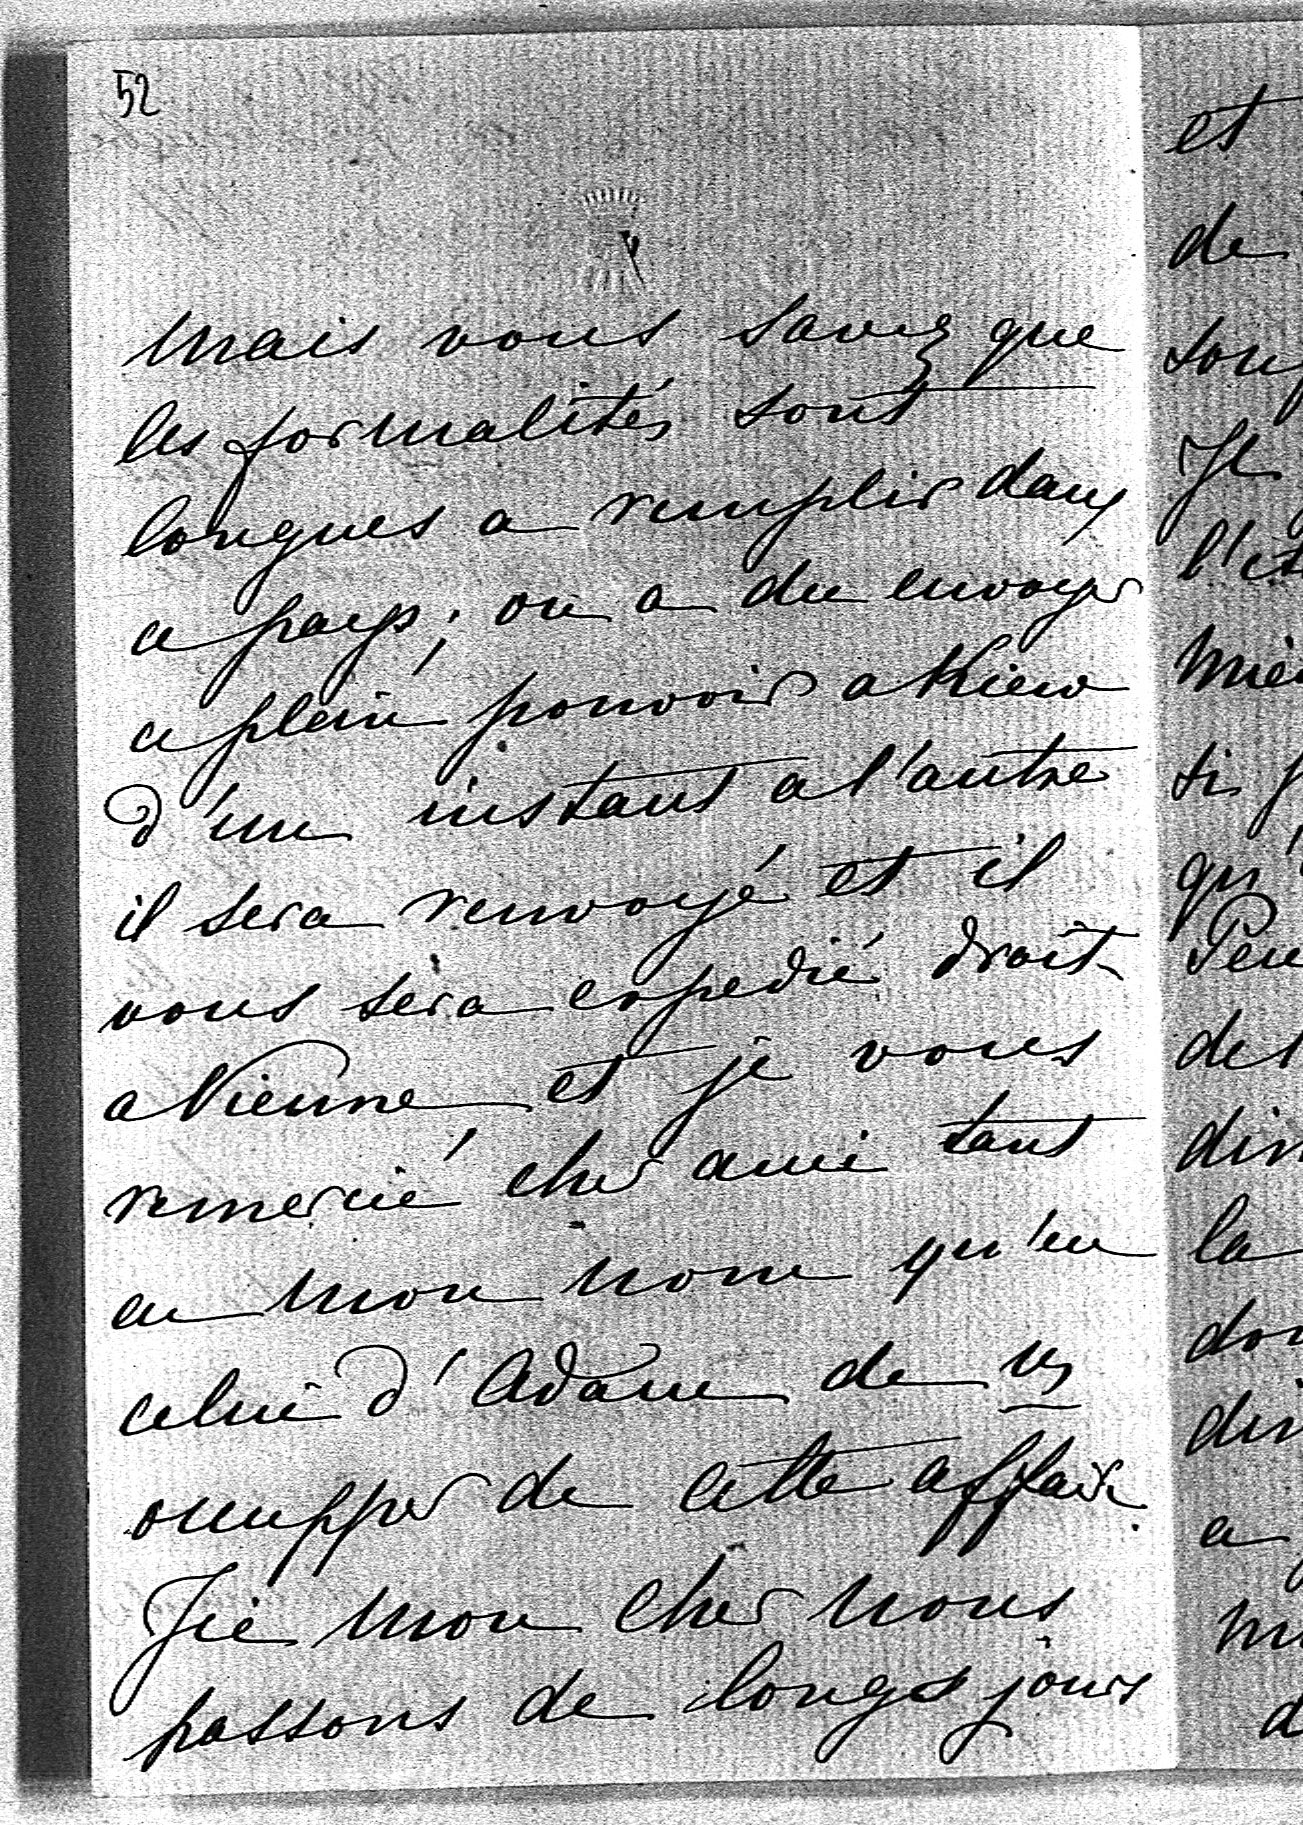 52
mais vous savez que
les formalités sont
longues a remplir dans
ce pays; on a du envoyer
ce plein pouvoir a Kiew
d'un instant a l'autre
il sera renvoyé et il
vous sera expedié droit
a Vienne et je vous
remercié cher ami tant
en mon nom qu'en
celui d'Adam de vs
occupper de cette affaire.
Ici mon cher nous
passons de longs jours
et
de
Je
la
a